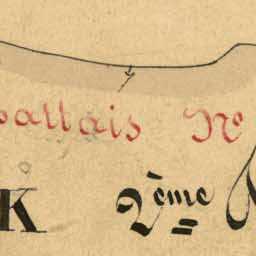 allais No
K 2ème